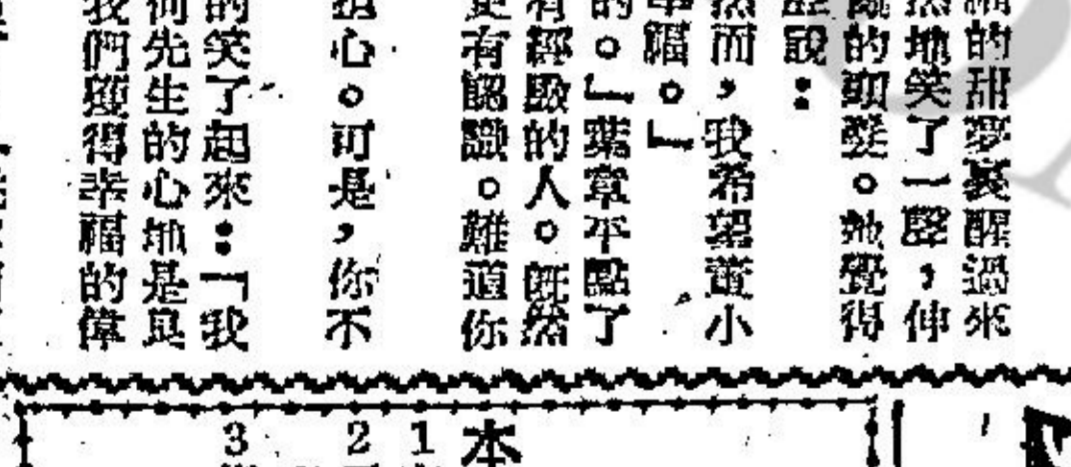 的甜夢裏醒過來
然地笑了一聲，伸
的頭髮。她覺得
說：
然而，我希望董小
福。」
的。」葉章平點了
有經驗的人。既然
更有認識。難道你
心。可是，你不
的笑了起來：「我
何先生的心地是良
我們獲得幸福的偉
本
1
2
3